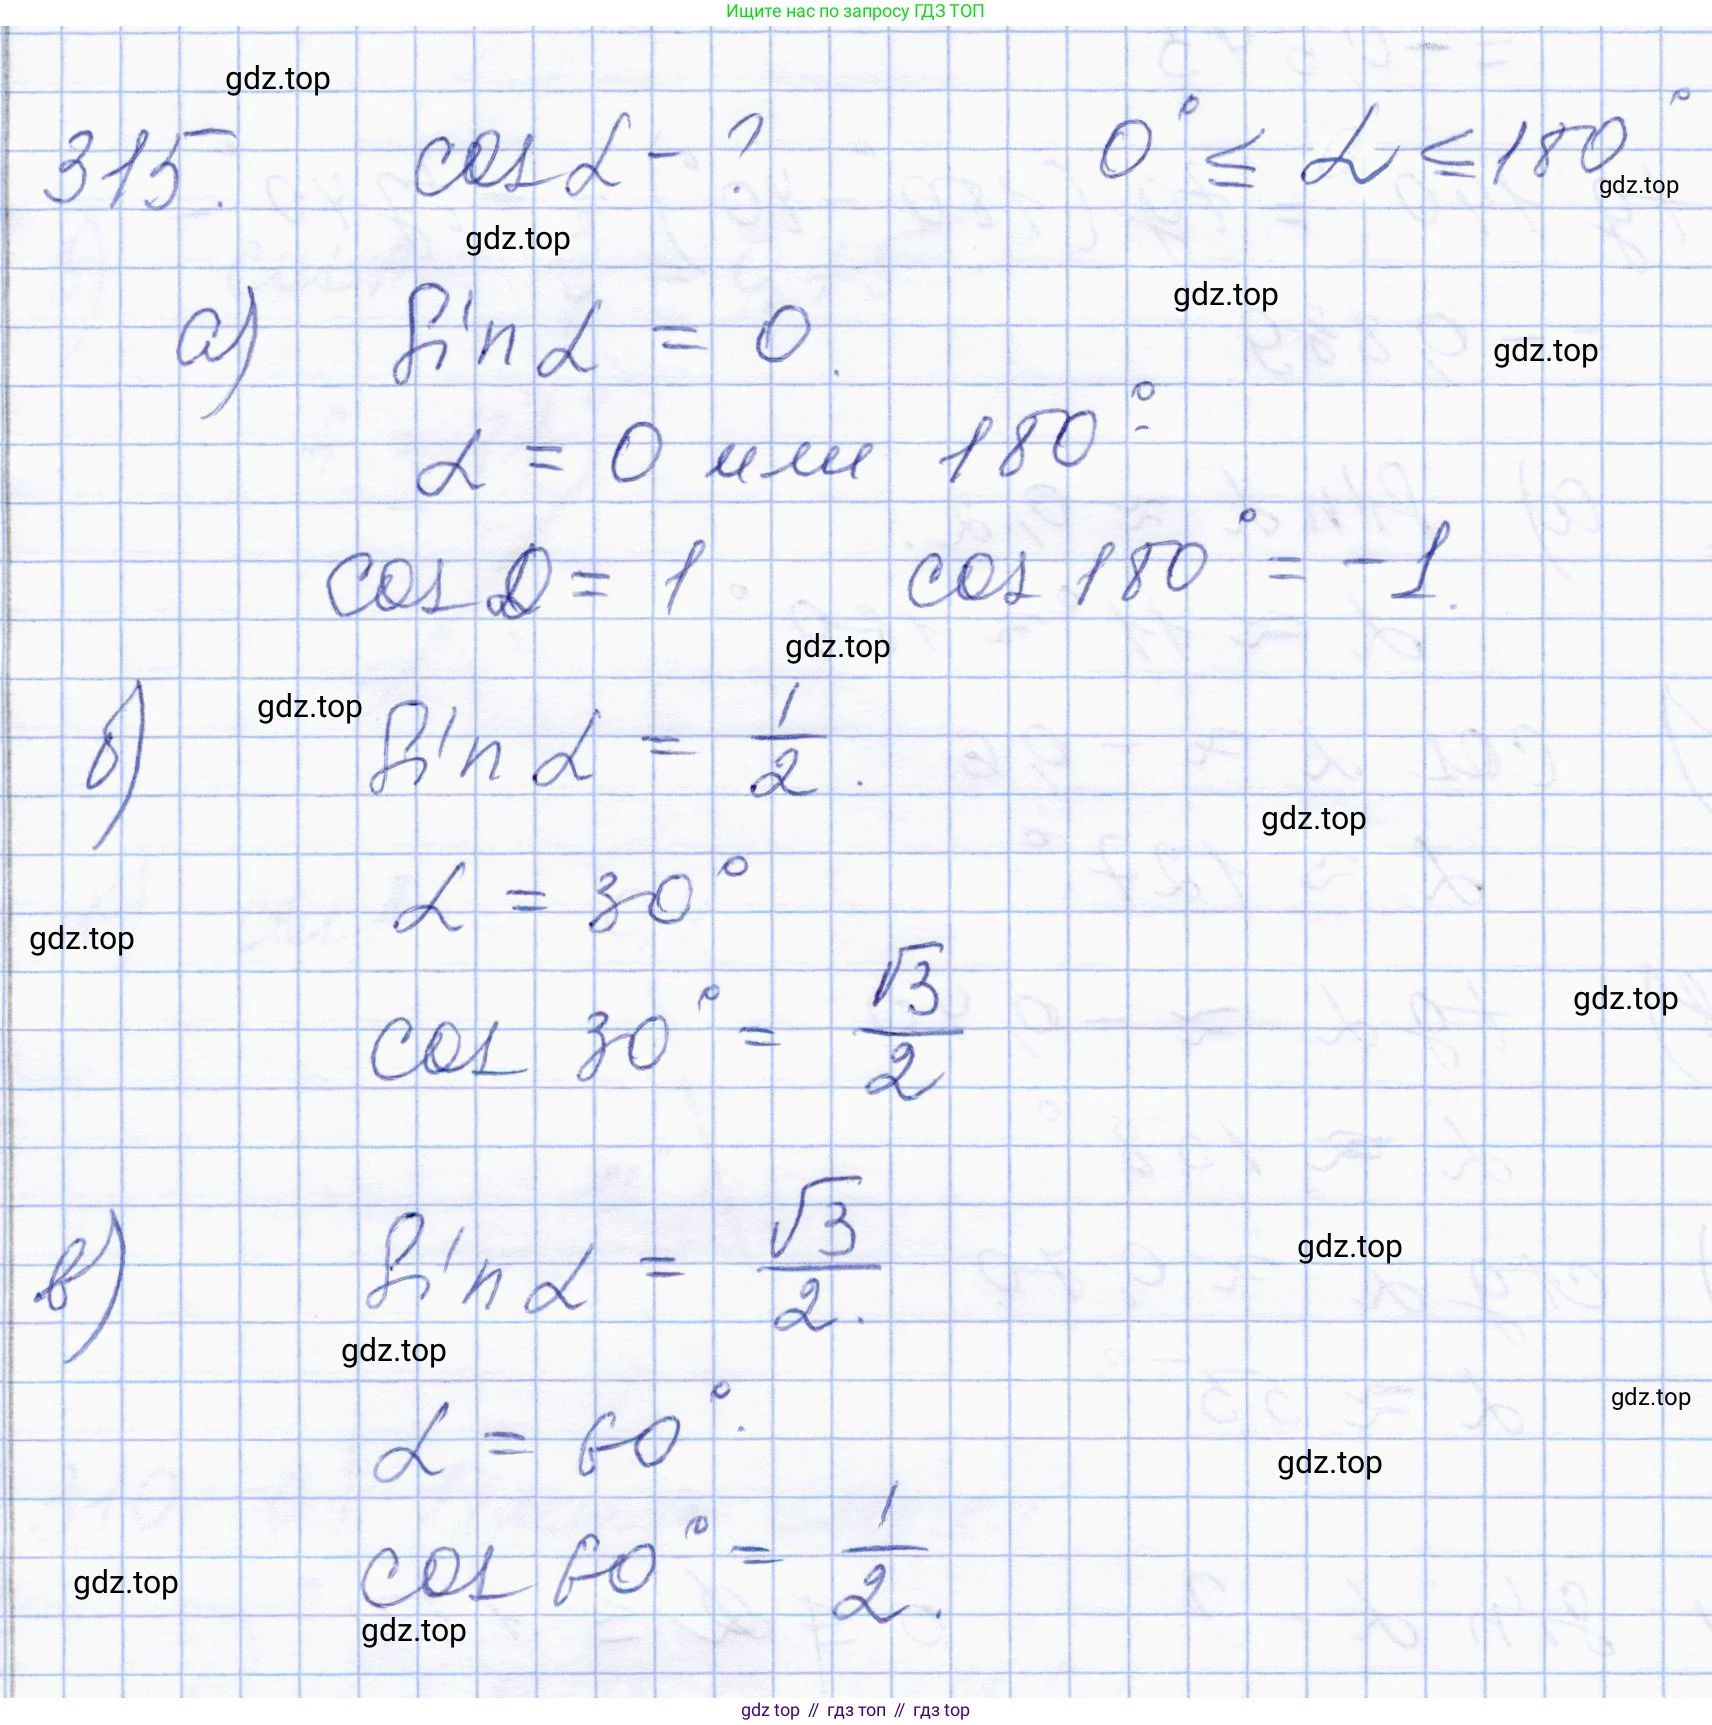 Ищите нас по запросу ГДЗ ТОП
gdz.top
315. cos α - ? 0° ≤ α ≤ 180°
gdz.top
gdz.top
gdz.top
а) sin α = 0.
gdz.top
α = 0 или 180°.
cos 0 = 1 cos 180° = -1.
gdz.top
gdz.top
б) sin α = 1/2.
gdz.top
α = 30°
gdz.top
gdz.top
cos 30° = √3/2
в) sin α = √3/2.
gdz.top
gdz.top
gdz.top
α = 60°.
gdz.top
cos 60° = 1/2.
gdz.top
gdz.top
gdz top // гдз топ // гдз top